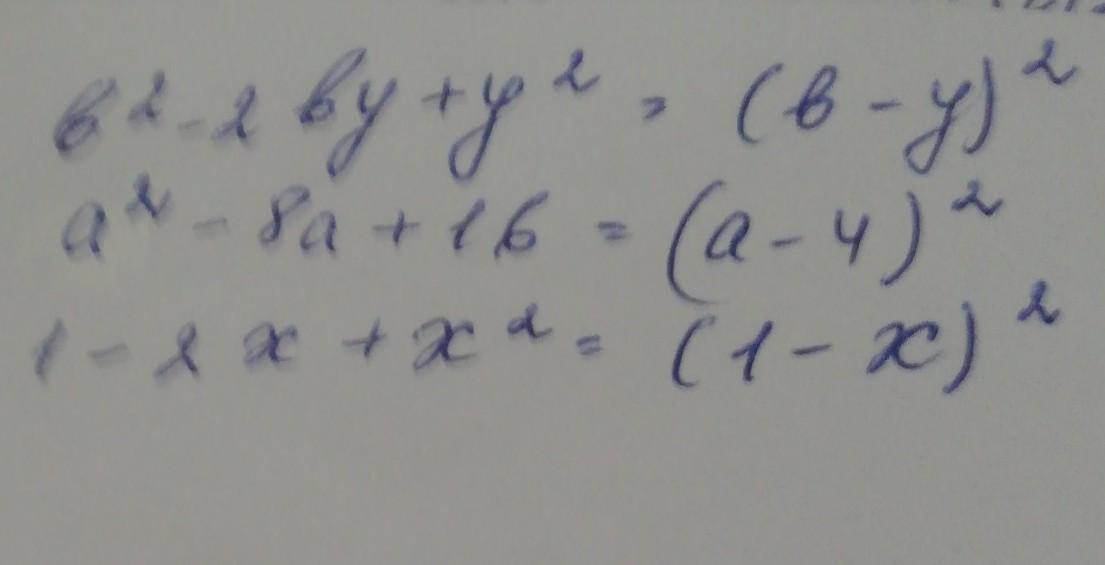 b² - 2by + y² = (b - y)²
a² - 8a + 16 = (a - 4)²
1 - 2x + x² = (1 - x)²